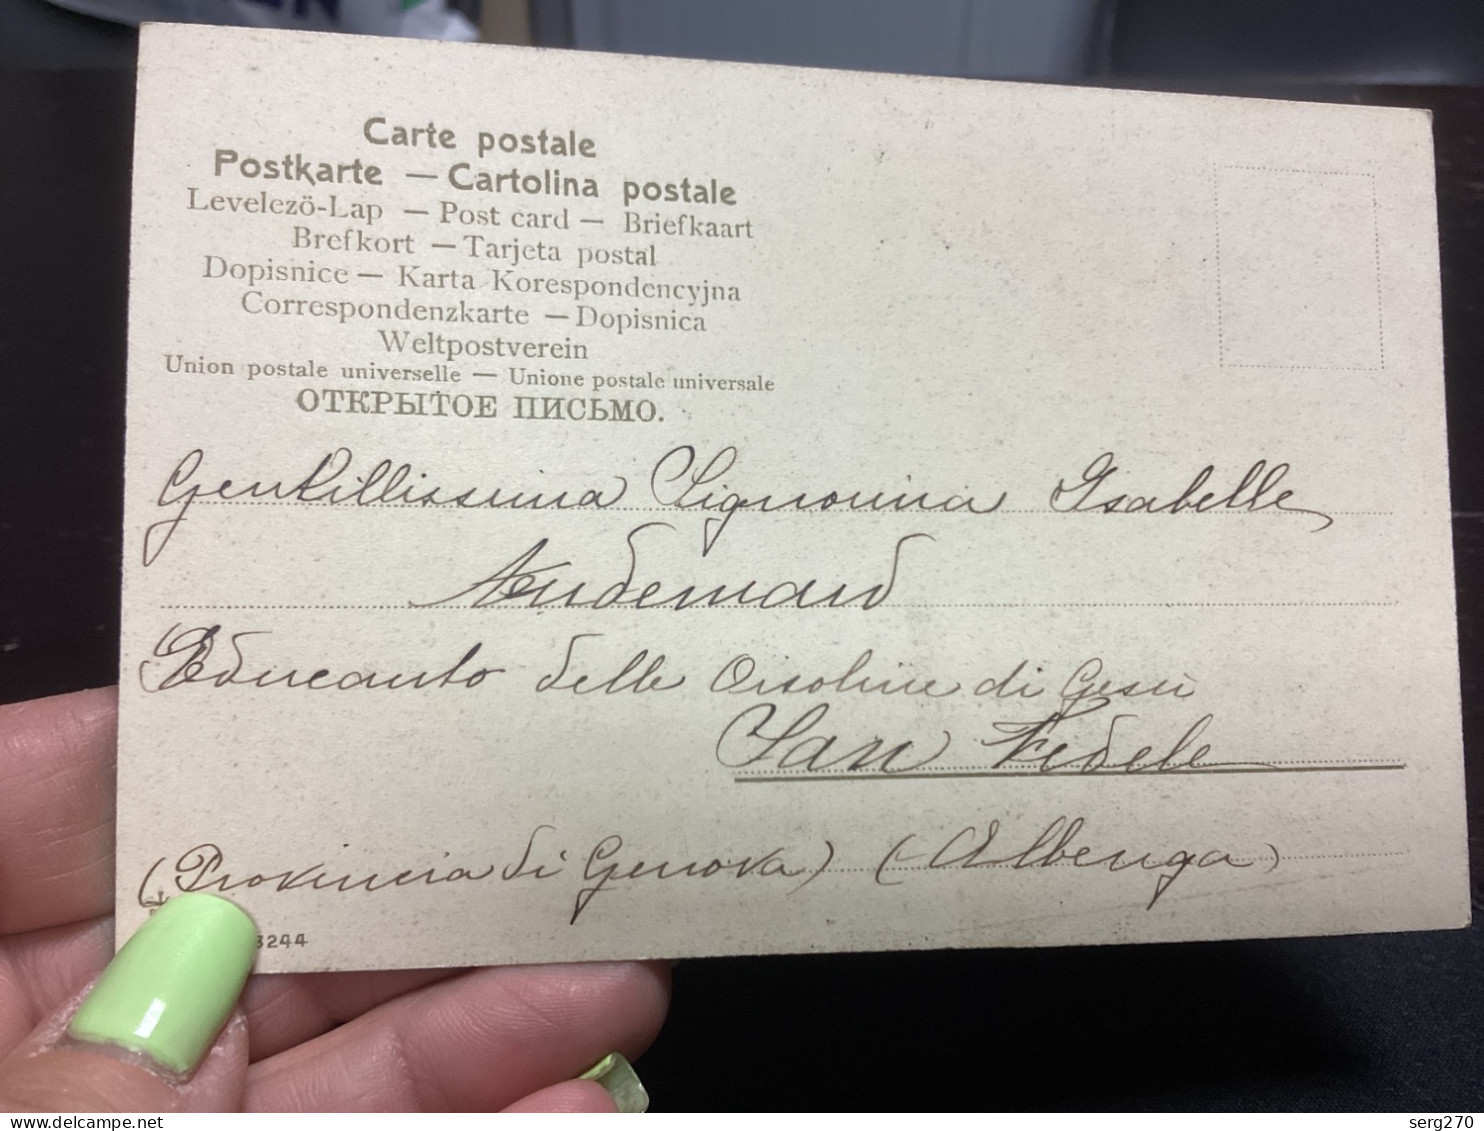 Carte postale
Postkarte — Cartolina postale
Levelezö-Lap — Post card — Briefkaart
Brefkort — Tarjeta postal
Dopisnice — Karta Korespondencyjna
Correspondenzkarte — Dopisnica
Weltpostverein
Union postale universelle — Unione postale universale
ОТКРЫТОЕ ПИСЬМО.
Gentillissima Signorina Isabelle
Audemard
Educanto delle Orsoline di Gesù
San Fedele
(Provincia di Genova) (Albenga)
3244
serg270
delcampe.net